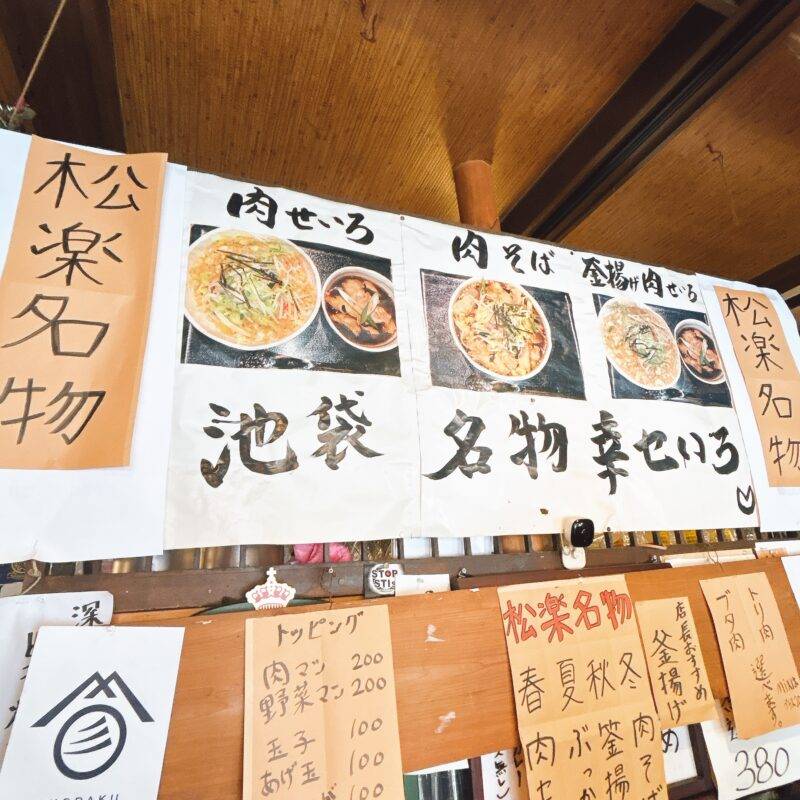 松楽名物
肉せいろ
肉そば
釜揚げ肉せいろ
松楽名物
池袋
名物
幸せいろ
STOP
深
トッピング
肉マン 200
野菜マン 200
玉子 100
あげ玉 100
100
松楽名物
春夏秋冬
店長おすすめ
釜揚げ
トリ肉
ブタ肉
選べます。
380